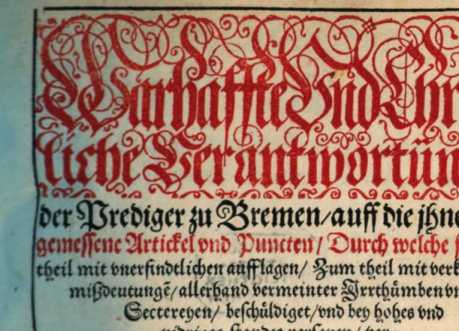 Warhaffte Vnd Chr
liche Verantwortun
der Prediger zu Bremen/auff die jhne
gemessene Artickel vnd Puncten/ Durch welche
theil mit vnerfindtlichen aufflagen/ Zum theil mit verk
mißdeutungē/ allerhand vermeinter Yrrthümben vn
Sectereyen/ beschüldiget/ vnd bey hohes vnd